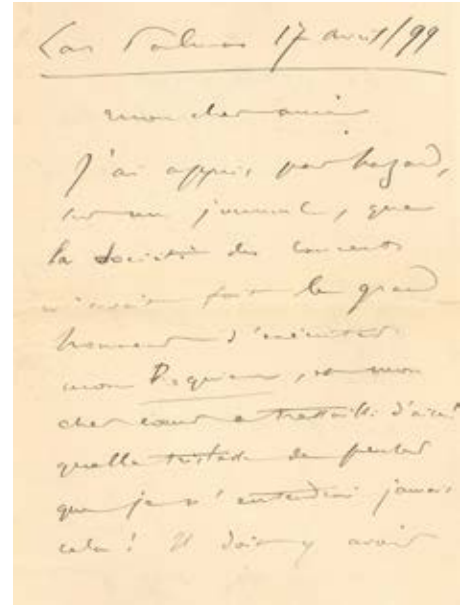 Las Palmas 17 avril/99
mon cher ami
J'ai appris, par hazard,
sur un journal, que
la Société des Concerts
m'avait fait le grand
honneur d'exécuter
mon Requiem, et mon
cher coeur a tressailli d'aise!
quelle tristesse de penser
que je n'entendrai jamais
cela! Il doit y avoir